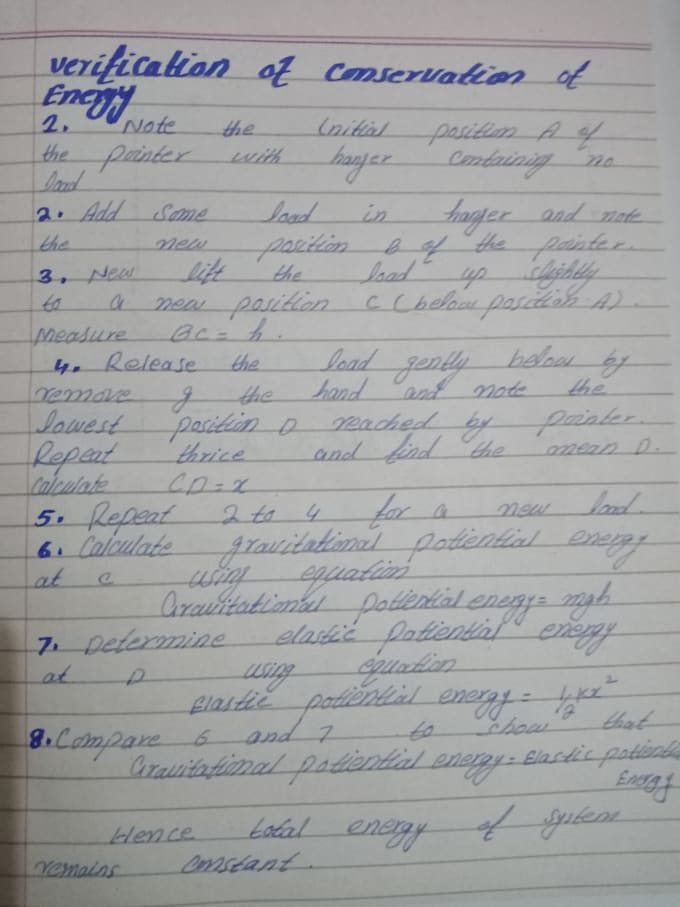 verification of conservation of
Energy
1. Note the initial position A of
the pointer with hanger containing no
load
2. Add some load in hanger and note
the new position B of the pointer.
3. New lift the load up slightly
to a new position C (below position A).
Measure BC = h.
4. Release the load gently below by
remove g the hand and note the
lowest position D reached by pointer.
Repeat thrice and find the mean D.
Calculate CD = x
5. Repeat 2 to 4 for a new load.
6. Calculate gravitational potiential energy
at c using equation
Gravitational potiential energy = mgh
7. Determine elastic patiential energy
at D using equation
Elastic potiential energy = 1/2 kx²
8. Compare 6 and 7 to show that
Gravitational potiential energy = Elastic potienti
Energy
Hence total energy of system
remains constant.